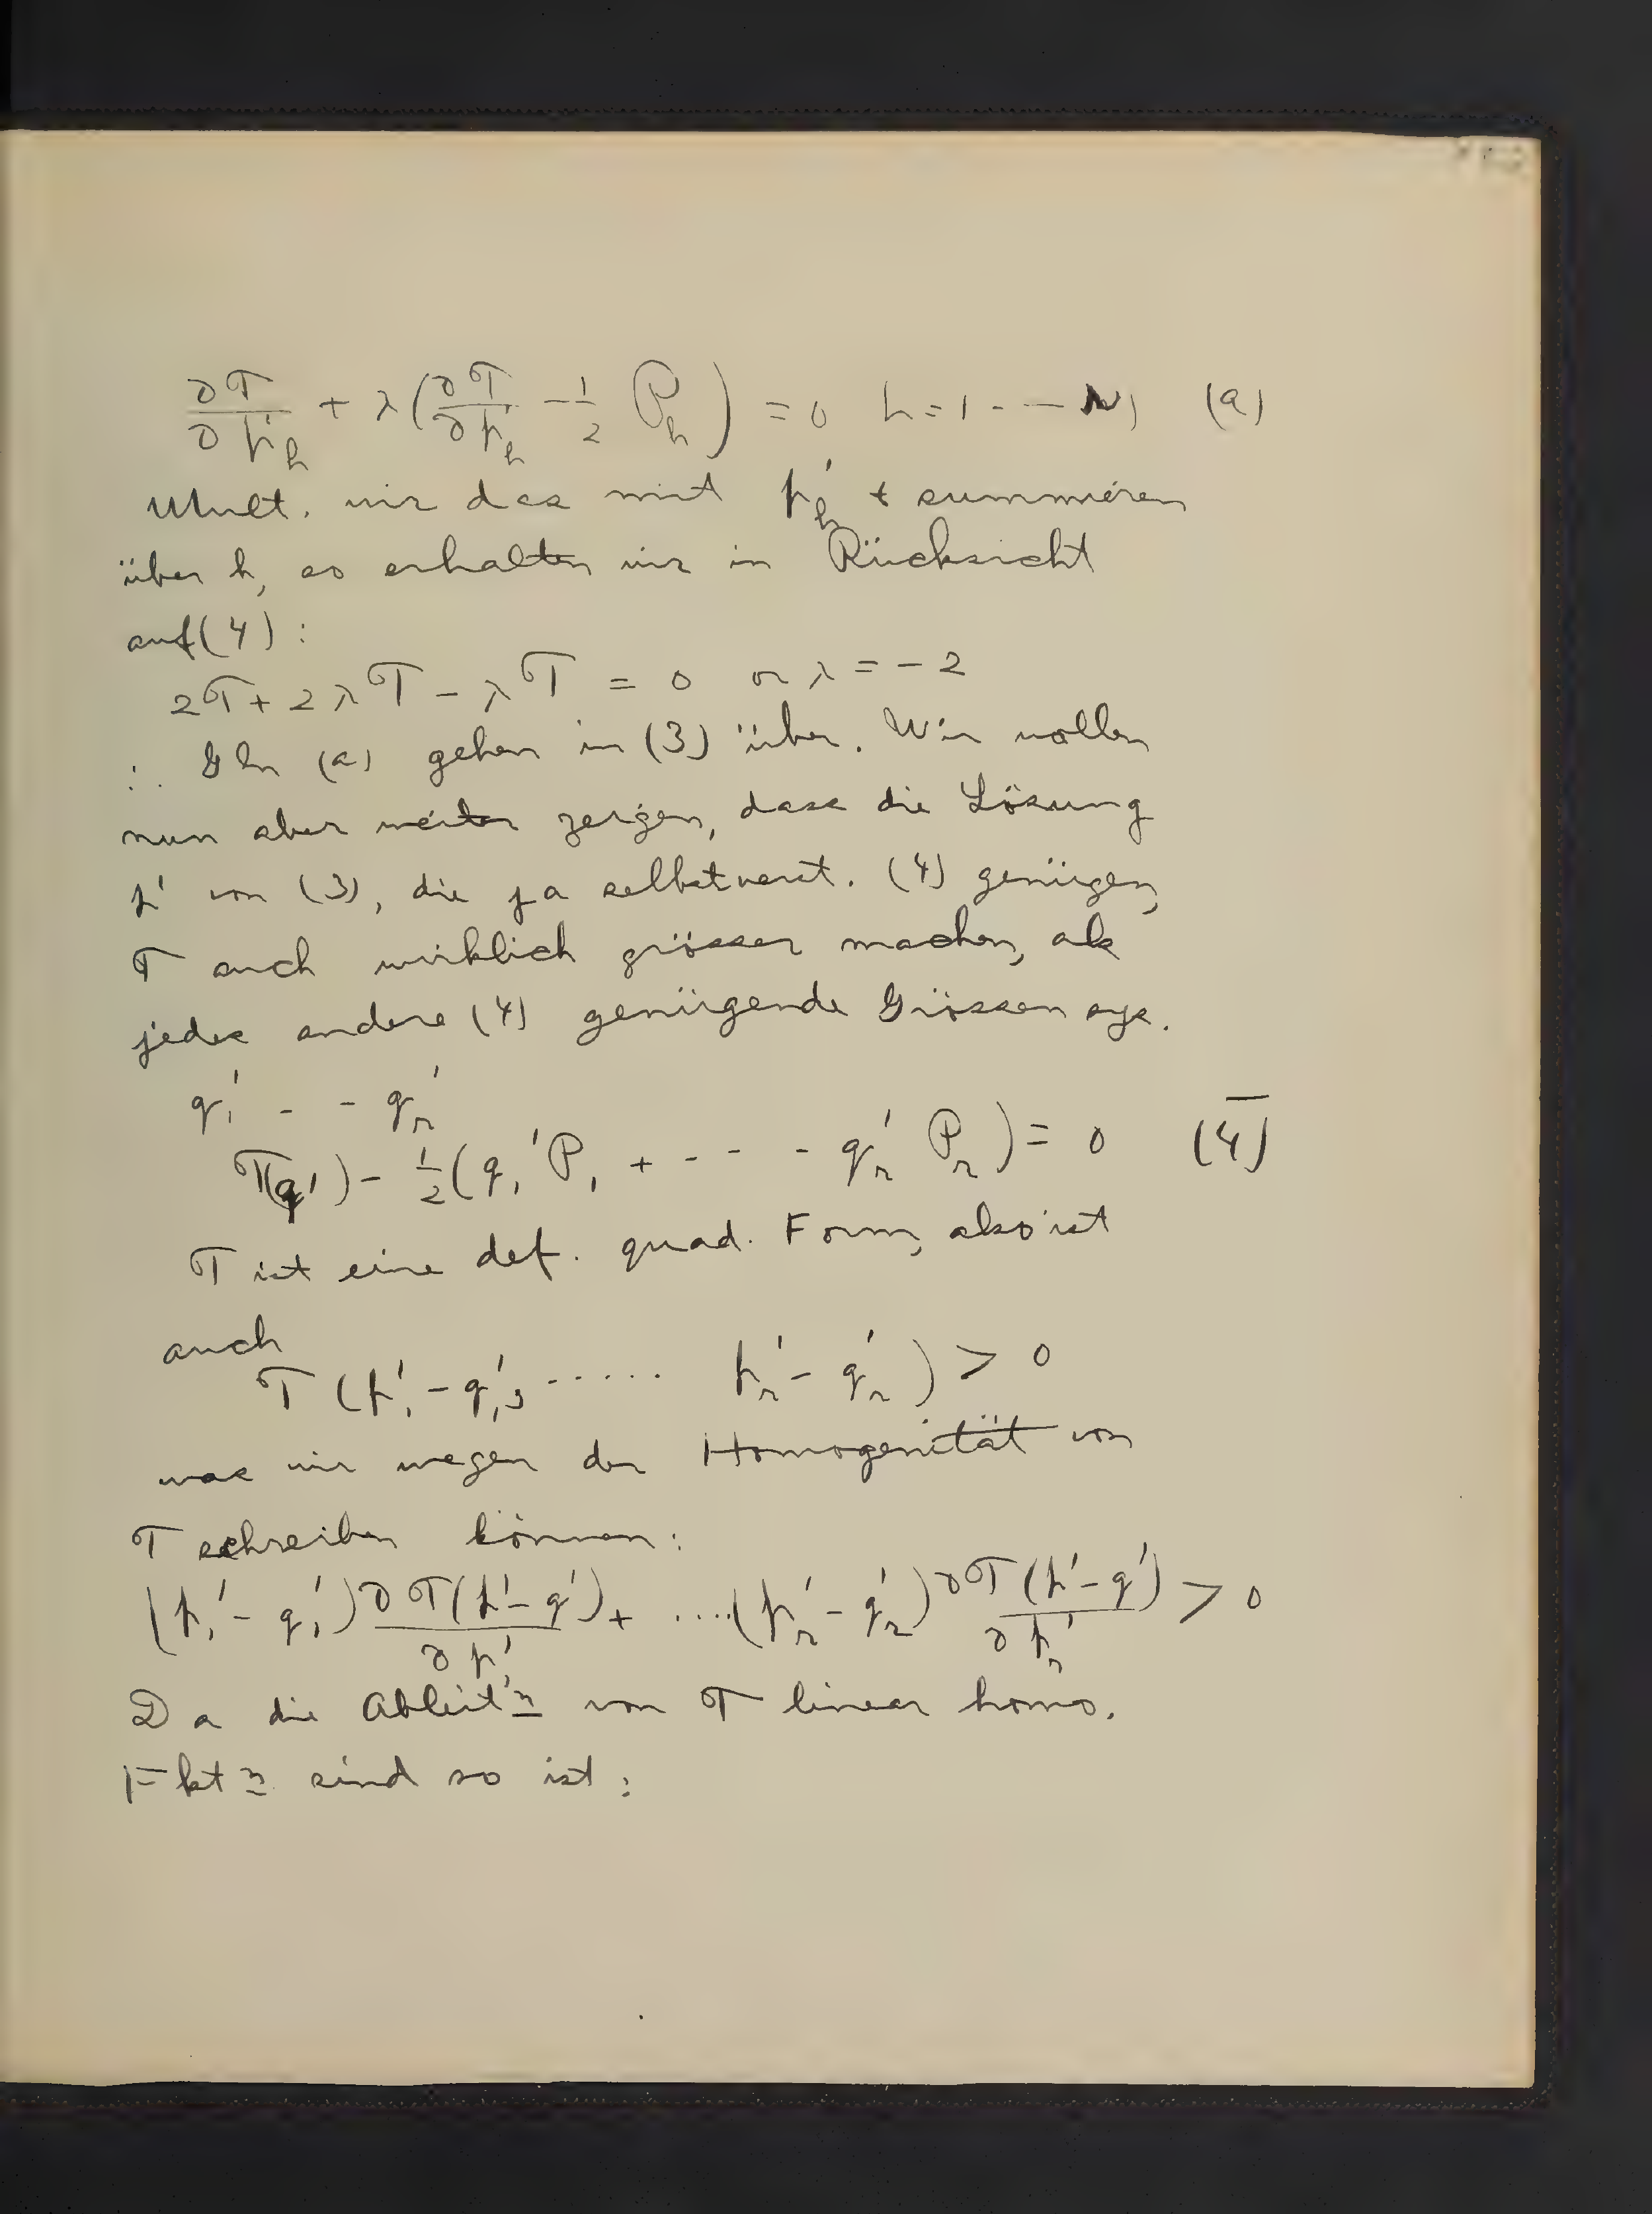 ∂T/∂p'_h + λ(∂T/∂p'_h − 1/2 P_h) = 0 h = 1 . - - n, (a)
Mult. wir das mit p'_h + summieren
über h, so erhalten wir in Rücksicht
auf (4) :
2T + 2λT − λT = 0 or λ = − 2
∴ Gln (a) gehen in (3) über. Wir wollen
nun aber weiter zeigen, dass die Lösung
p' von (3), die ja selbstverst. (4) genügen,
T auch wirklich grösser machen, als
jedes andere (4) genügende Grössen sys.
q'_1 - - q'_r
T(q') − 1/2 (q_1' P_1 + - - - q'_r P_r) = 0 (4̄)
T ist eine def. quad. Form, also ist
auch
T (p'_1 − q'_1, ...... p'_r − q'_r) > 0
was wir wegen der Homogenität von
T schreiben können :
(p'_1 − q'_1) ∂T(p' − q')/∂p'_1 + .... (p'_r − q'_r) ∂T(p' − q')/∂p'_r > 0
Da die Ableit'n von T linear homo.
Fktn sind so ist :